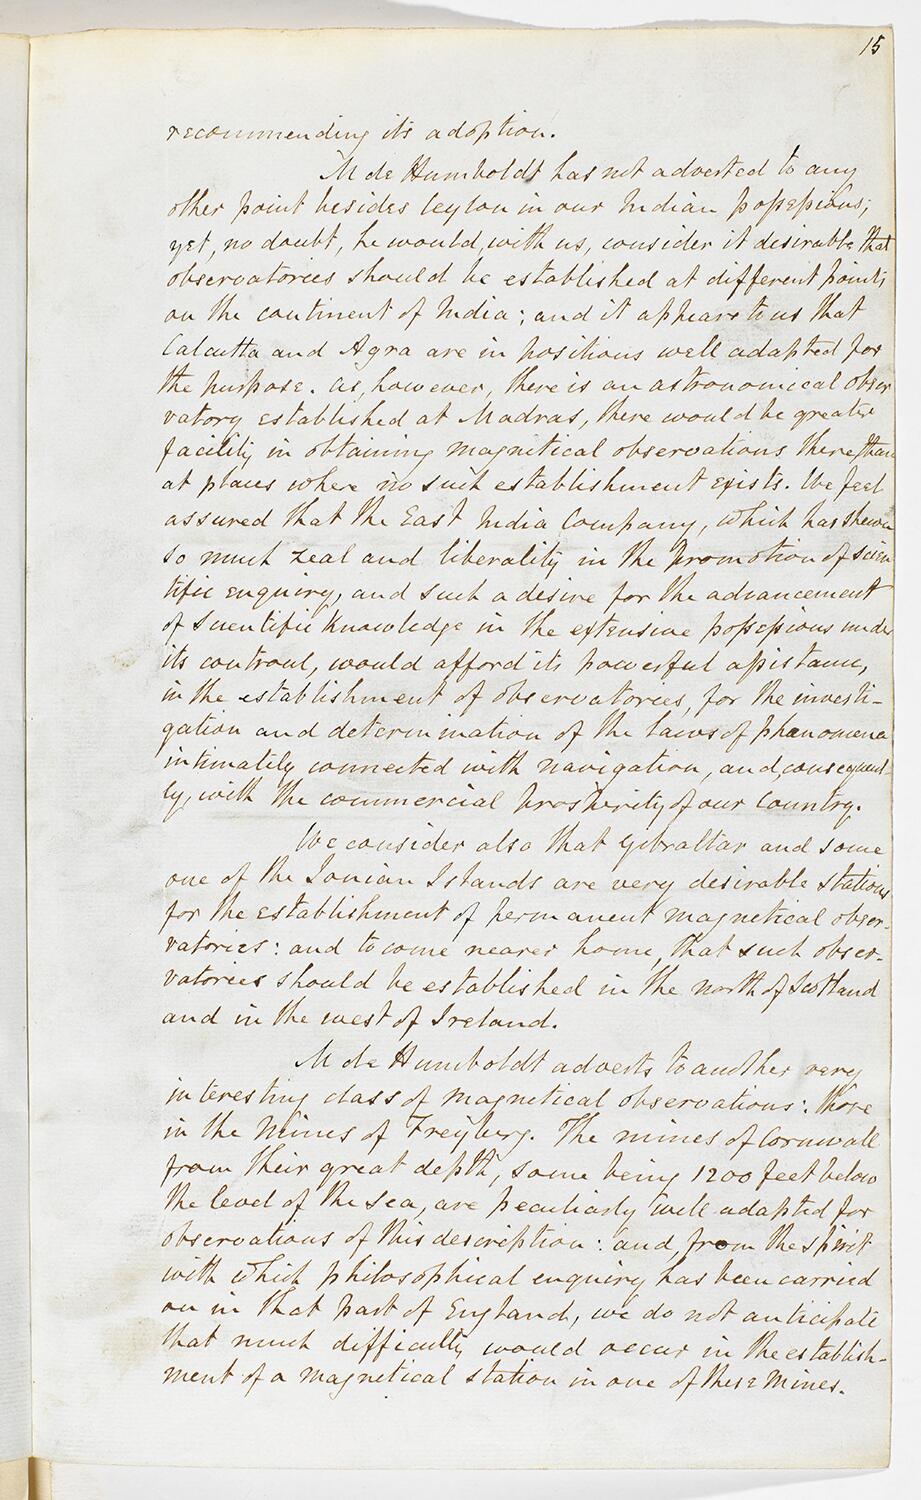 15
recommending its adoption.
M de Humboldt has not adverted to any
other point besides Ceylon in our Indian possessions;
yet, no doubt, he would, with us, consider it desirable that
observatories should be established at different points
on the continent of India; and it appears to us that
Calcutta and Agra are in positions well adapted for
the purpose. As, however, there is an astronomical obser
vatory established at Madras, there would be greater
facility in obtaining magnetical observations there, than
at places where no such establishment exists. We feel
assured that the East India Company, which has shewn
so much zeal and liberality in the promotion of scien
tific enquiry, and such a desire for the advancement
of scientific knowledge in the extensive possessions under
its controul, would afford its powerful assistance,
in the establishment of observatories, for the investi-
gation and determination of the laws of phænomena
intimately connected with navigation, and, consequent-
ly, with the commercial prosperity of our Country.
We consider also that Gibraltar and some
one of the Ionian Islands are very desirable stations
for the establishment of permanent magnetical obser-
vatories: and to come nearer home, that such obser-
vatories should be established in the north of Scotland
and in the west of Ireland.
M de Humboldt adverts to another very
interesting class of magnetical observations: those
in the Mines of Freyberg. The mines of Cornwall
from their great depth, some being 1200 feet below
the level of the sea, are peculiarly well adapted for
observations of this description: and from the spirit
with which philosophical enquiry has been carried
on in that part of England, we do not anticipate
that much difficulty would occur in the establish-
ment of a magnetical station in one of these Mines.